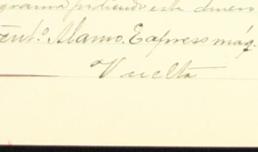 pidiendo este dinero
Alamo. Express máq.
Vuelta